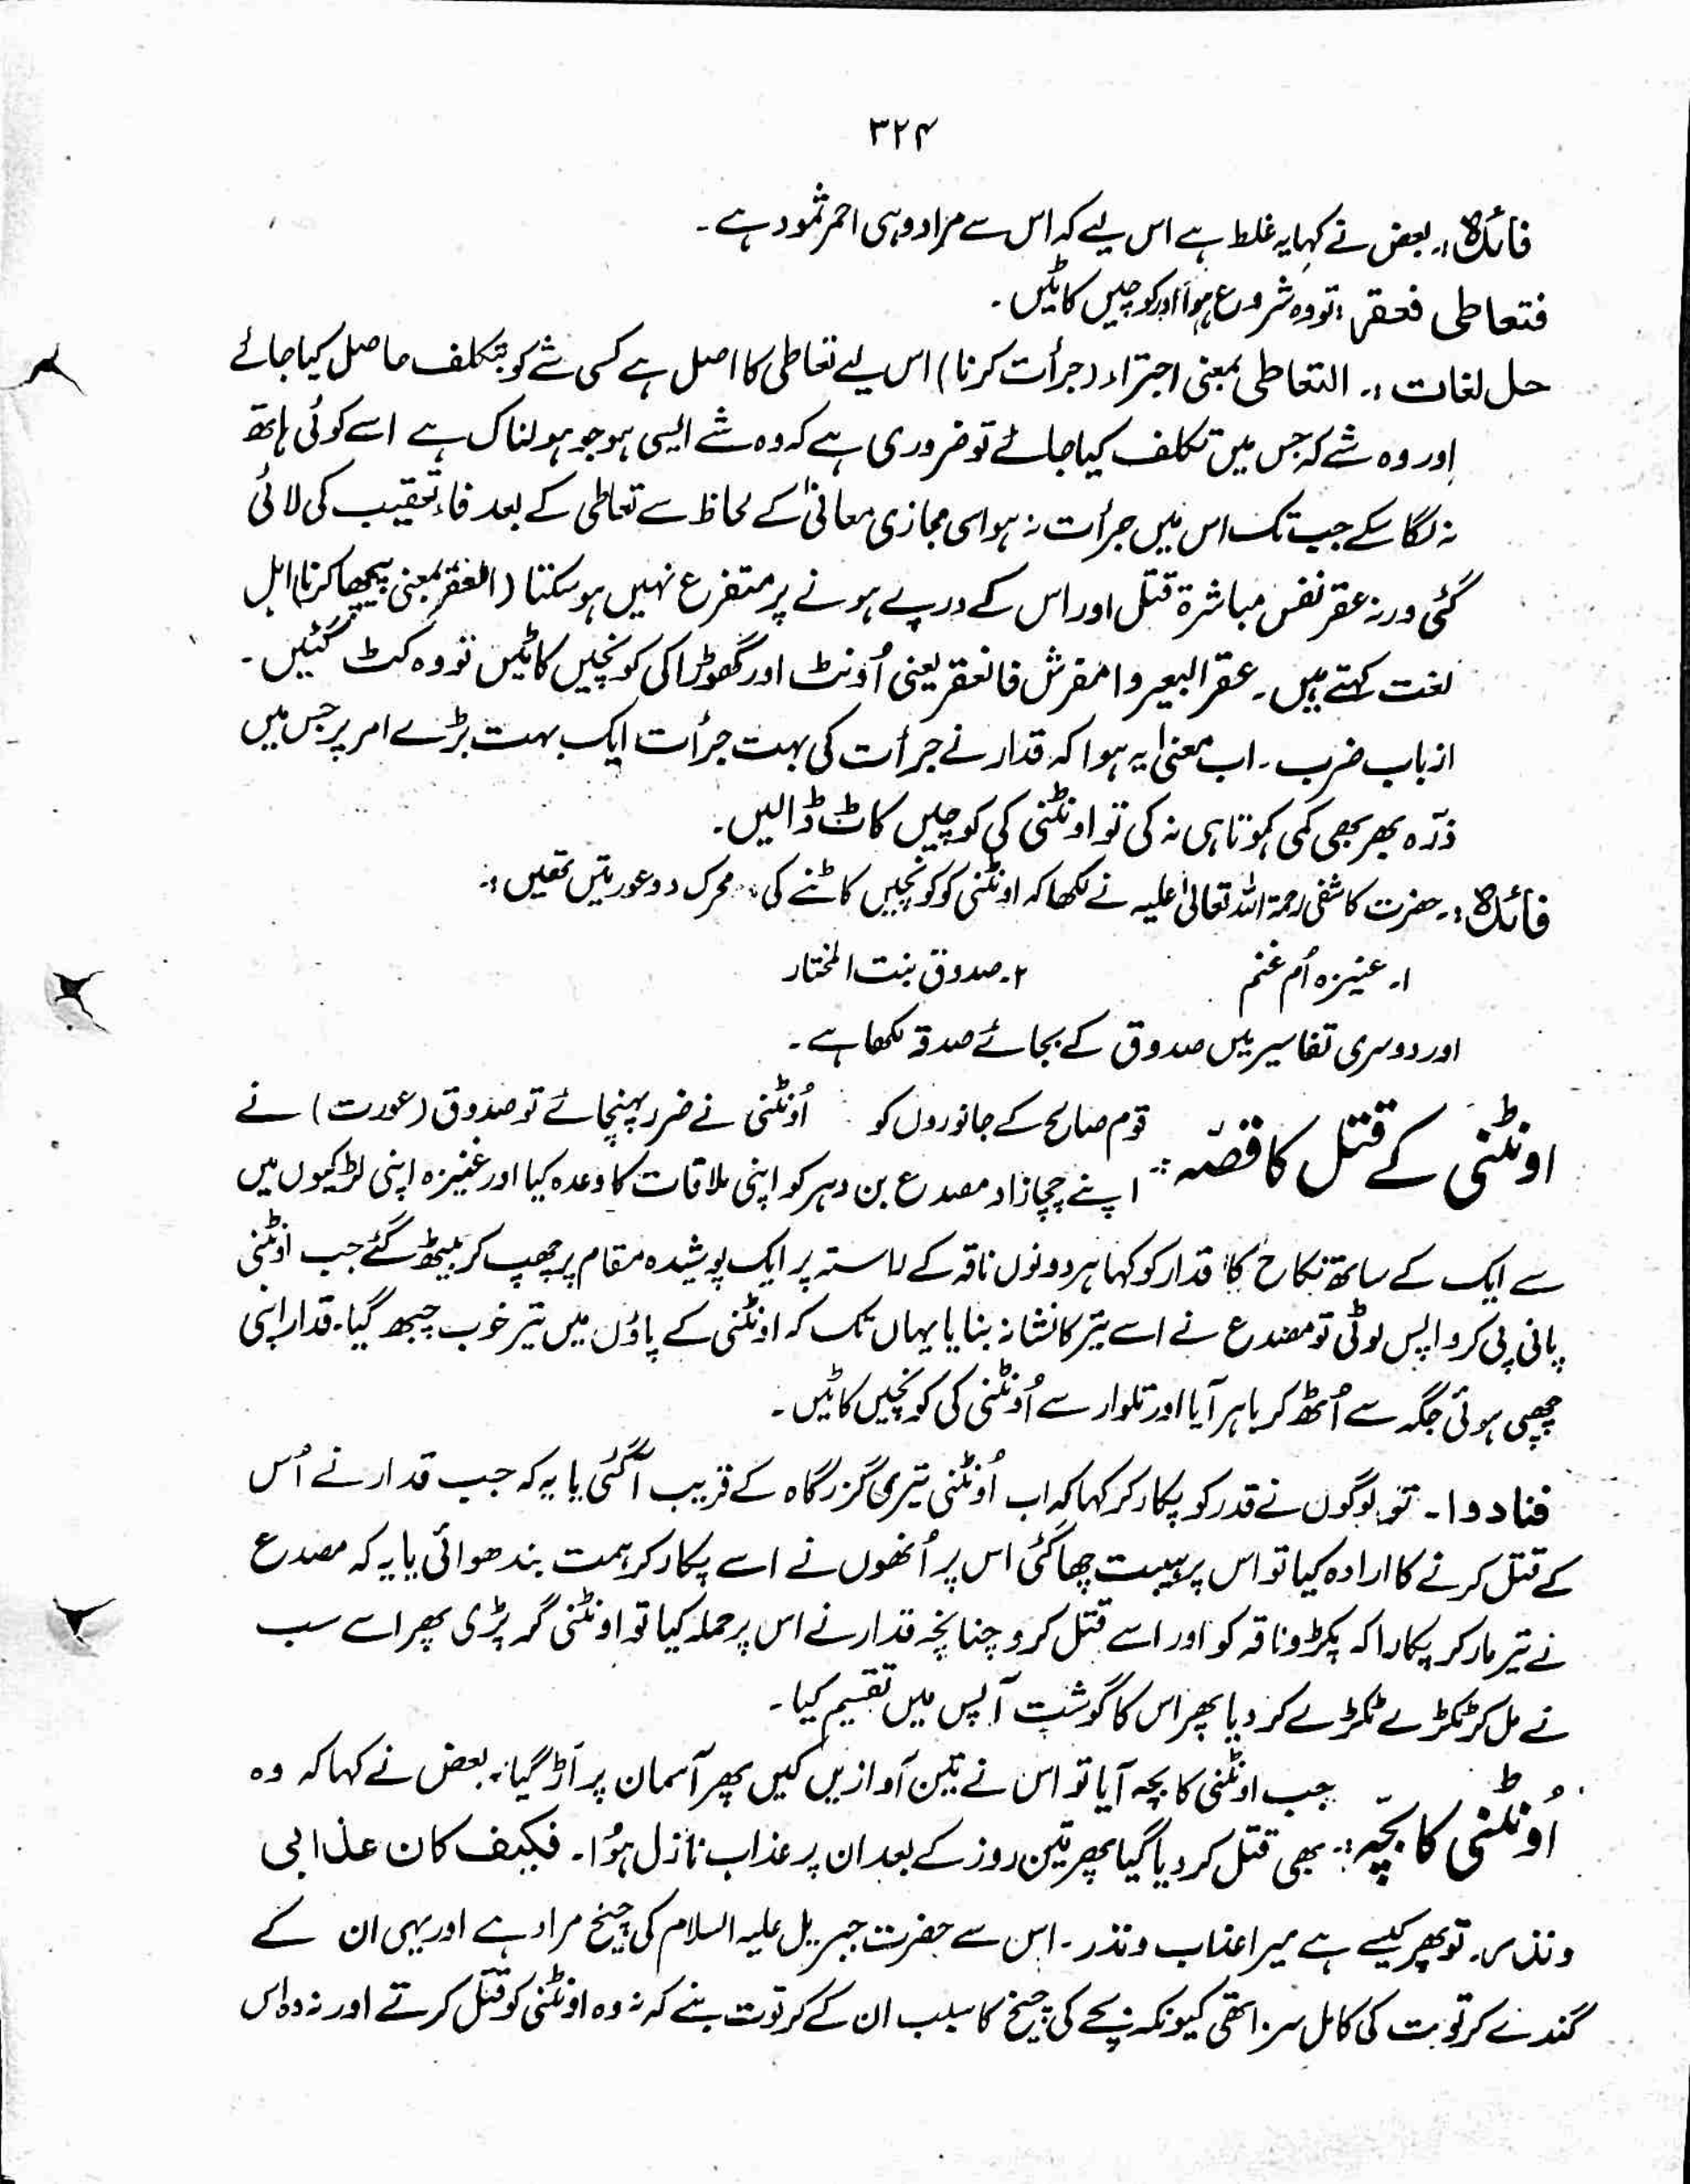 ۳۲۴
فائدہ:۔ بعض نے کہا یہ غلط ہے اس لیے کہ اس سے مراد وہی احمر ثمود ہے۔
فتعاطی فعقر: تو وہ شروع ہوا اور کوچیں کاٹیں۔
حل لغات:۔ التعاطی بمعنی اجتراء (جرأت کرنا) اس لیے تعاطی کا اصل ہے کسی شے کو بتکلف حاصل کیا جائے
اور وہ شے کہ جس میں تکلف کیا جائے تو ضروری ہے کہ وہ شے ایسی ہو جو ہولناک ہے اسے کوئی ہاتھ
نہ لگا سکے جب تک اس میں جرأت نہ ہو اسی مجازی معانی کے لحاظ سے تعاطی کے بعد فاء تعقیب کی لائی
گئی ورنہ عقر نفس مباشرۃ قتل اور اس کے درپے ہونے پر متفرع نہیں ہو سکتا (العقر بمعنی پیچھا کرنا) اہل
لغت کہتے ہیں۔ عقر البعیر والفرش فانعقر یعنی اُونٹ اور گھوڑا کی کونچیں کاٹیں تو وہ کٹ گئیں۔
از باب ضرب۔ اب معنیٰ یہ ہوا کہ قدار نے جرأت کی بہت جرأت ایک بہت بڑے امر پر جس میں
ذرّہ بھر بھی کمی کوتاہی نہ کی تو اونٹنی کی کوچیں کاٹ ڈالیں۔
فائدہ:۔ حضرت کاشفی رحمۃ اللہ تعالیٰ علیہ نے لکھا کہ اونٹنی کو کونچیں کاٹنے کی محرک دو عورتیں تھیں:۔
۱۔ عنیزہ اُم غنم ۲۔ صدوق بنت المختار
اور دوسری تفاسیر میں صدوق کے بجائے صدقہ لکھا ہے۔
اونٹنی کے قتل کا قصّہ:۔ قوم صالح کے جانوروں کو اُونٹنی نے ضرر پہنچائے تو صدوق (عورت) نے
اپنے چچا زاد مصدع بن دہر کو اپنی ملاقات کا وعدہ کیا اور عنیزہ اپنی لڑکیوں میں
سے ایک کے ساتھ نکاح کا قدار کو کہا ہر دونوں ناقہ کے راستہ پر ایک پوشیدہ مقام پر چھپ کر بیٹھ گئے جب اونٹنی
پانی پی کر واپس لوٹی تو مصدع نے اسے تیر کا نشانہ بنایا یہاں تک کہ اونٹنی کے پاؤں میں تیر خوب چبھ گیا۔ قدار اپنی
چھپی ہوئی جگہ سے اُٹھ کر باہر آیا اور تلوار سے اُونٹنی کی کونچیں کاٹیں۔
فنادوا۔ تو لوگوں نے قدر کو پکار کر کہا کہ اب اُونٹنی تیری گزرگاہ کے قریب آ گئی یا یہ کہ جب قدار نے اُس
کے قتل کرنے کا ارادہ کیا تو اس پر ہیبت چھا گئی اس پر اُنھوں نے اسے پکار کر ہمت بندھوائی یا یہ کہ مصدع
نے تیر مار کر پکارا کہ پکڑو ناقہ کو اور اسے قتل کرو چنانچہ قدار نے اس پر حملہ کیا تو اونٹنی گر پڑی پھر اسے سب
نے مل کر ٹکڑے ٹکڑے کر دیا پھر اس کا گوشت آپس میں تقسیم کیا۔
اُونٹنی کا بچّہ:۔ جب اونٹنی کا بچہ آیا تو اس نے تین آوازیں کیں پھر آسمان پر اُڑ گیا۔ بعض نے کہا کہ وہ
بھی قتل کر دیا گیا پھر تین روز کے بعد ان پر عذاب نازل ہُوا۔ فکیف کان عذابی
ونذر۔ تو پھر کیسے ہے میرا عذاب ونذر۔ اس سے حضرت جبریل علیہ السلام کی چیخ مراد ہے اور یہی ان کے
گندے کرتوت کی کامل سزا تھی کیونکہ بچے کی چیخ کا سبب ان کے کرتوت بنے کہ نہ وہ اونٹنی کو قتل کرتے اور نہ وہ اس